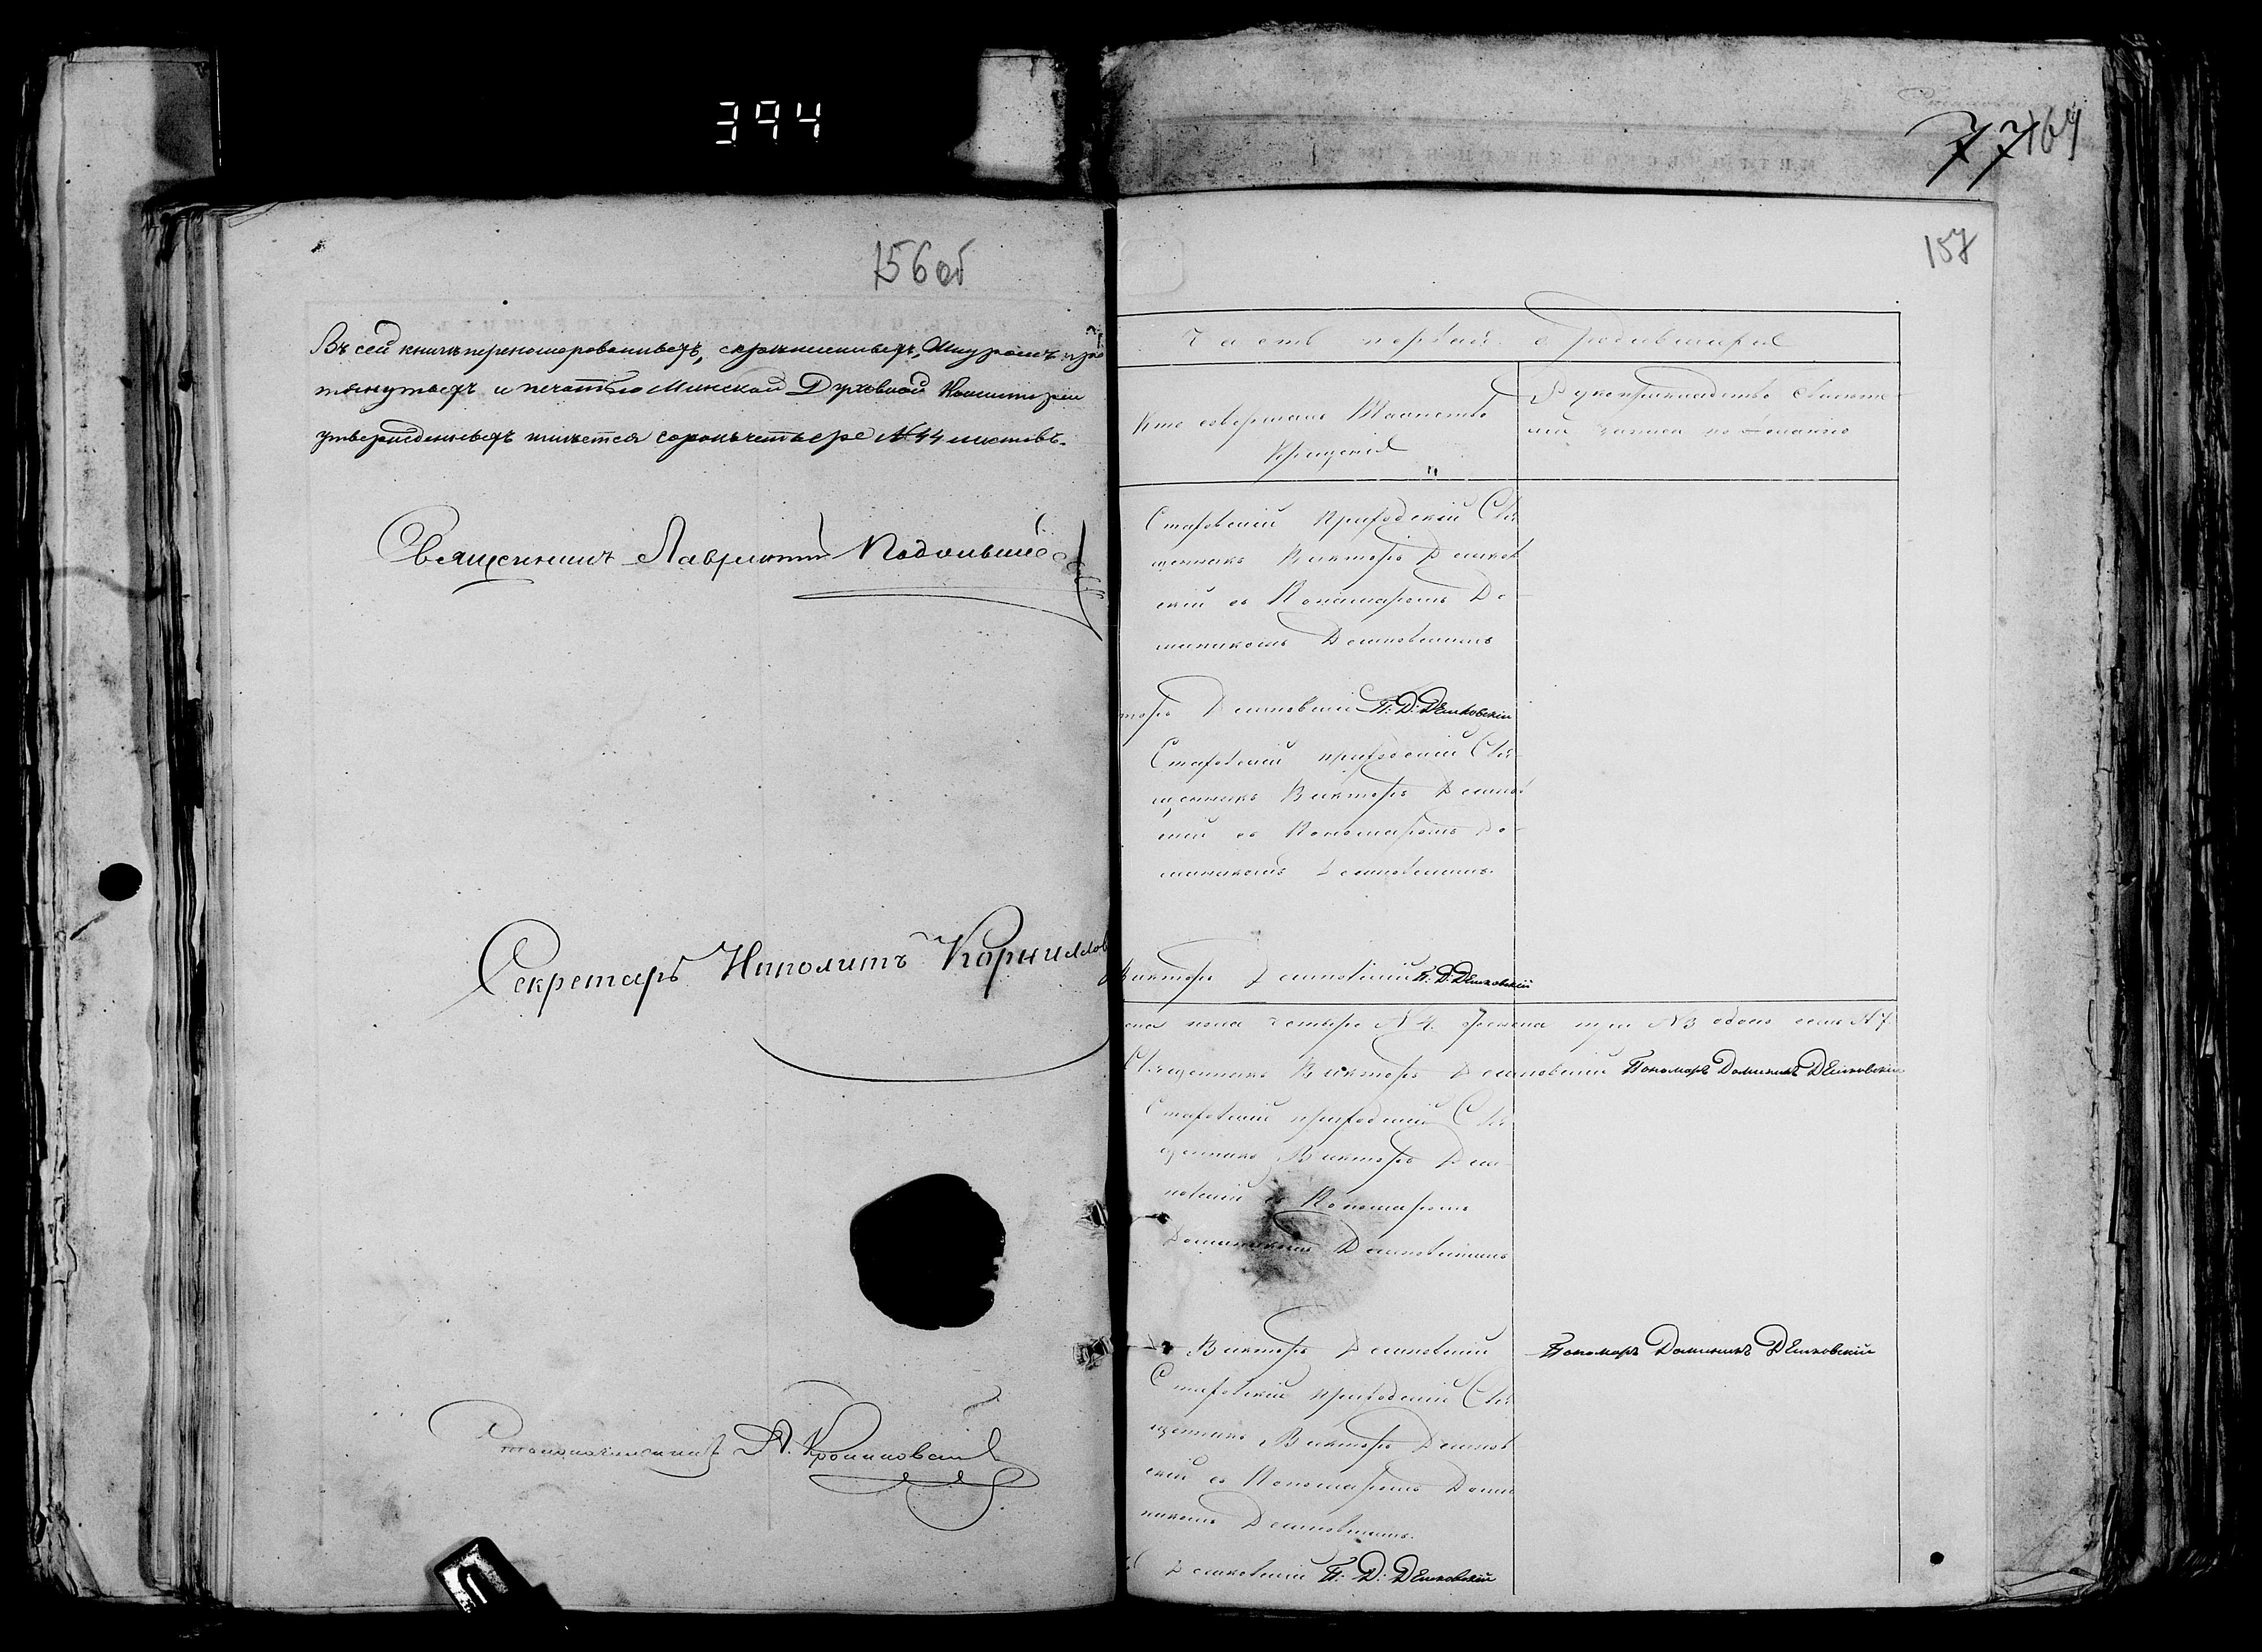 394
77 169
156 об
Въ сей книгѣ переномерованныхъ, скрѣпленныхъ, шнуромъ про
тянутыхъ и печатью Минской Духовной Консисторіи
утвержденныхъ имѣется сорокъ четыре № 44 листовъ.
Священникъ Лаврентій
Секретарь Ипполитъ Корнилов
Столоначальникъ А.
157
Часть первая о родившихся
Кто совершалъ Таинство
Крещенія
Рукоприкладство свидѣте
лей записи по желанію
Приходскій Свя
щенникъ Викторъ Дешков
скій съ Пономаремъ До
миникомъ Дешковскимъ
торъ Дешковскій П: Д: Дешковскій
приходскій Свя
щенникъ Викторъ Дешков
скій съ Пономаремъ До
миникомъ Дешковскимъ.
Викторъ Дешковскій П: Д: Дешковскій
пола четыре № 4. женска три № 3 обоего семь № 7.
Священникъ Викторъ Дешковскій Пономарь Доминикъ Дешковскій
приходскій Свя
щенникъ Викторъ Деш
ковскій съ Пономаремъ
Доминикомъ Дешковскимъ
Викторъ Дешковскій Пономарь Доминикъ Дешковскій
приходскій Свя
щенникъ Викторъ Дешков
скій съ Пономаремъ Доми
никомъ Дешковскимъ.
Дешковскій П: Д: Дешковскій